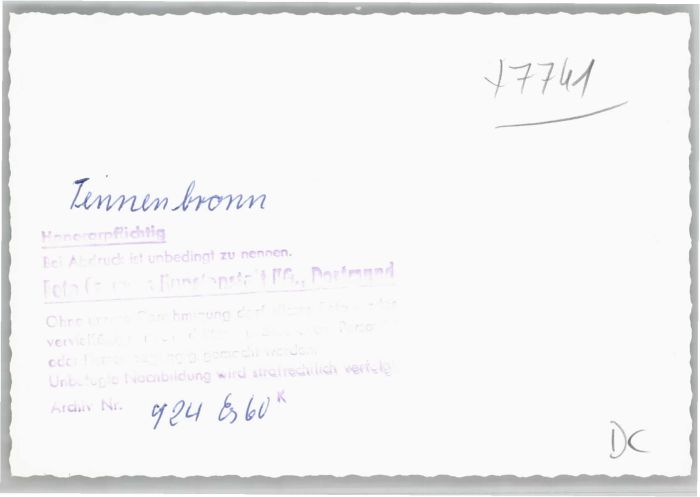 77741
Tennenbronn
Honorarpflichtig
Bei Abdruck ist unbedingt zu nennen.
Foto Kunstanstalt KG., Dortmund
Ohne unsere Genehmigung darf dieses Foto
oder gemacht werden.
Unbefugte Nachbildung wird strafrechtlich verfolgt
Archiv Nr. 924 Es 60 K
DC